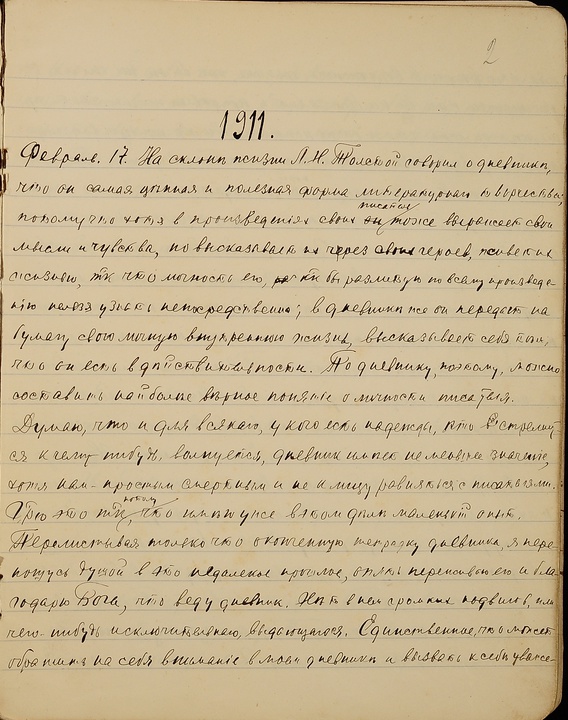 2
1911.
Февраль. 17. На склонѣ жизни Л. Н. Толстой говорил о дневникѣ,
что он самая цѣнная и полезная форма литературнаго творчества,
писатель
потому что хотя в произведеніях своих тоже выражает свои
мысли и чувства, но высказывает их через своих героев, живет их
жизнью, так что личность его, как бы разлитую по всему произведе-
нію нельзя узнать непосредственно; в дневникѣ же он передает на
бумагу свою личную внутреннюю жизнь, высказывает себя тѣм,
что он есть в дѣйствительности. По дневнику, поэтому, можно
составить наиболѣе вѣрное понятіе о личности писателя.
Думаю, что и для всякаго, у кого есть надежды, кто стремит-
ся к чему нибудь, волнуется, дневник имѣет не меньшее значеніе,
хотя нам - простым смертным и не к лицу равняться с писателями.
потому
Говорю это что имѣю уже в этом дѣлѣ маленькій опыт.
Перелистывая только что оконченную тетрадку дневника, я пере-
ношусь душой в это недалекое прошлое, опять переживаю его и бла-
годарю Бога, что веду дневник. Нѣт в нем громких подвигов, или
чего-нибудь исключительнаго, выдающагося. Единственное, что может
обратить на себя вниманіе в моем дневникѣ и вызвать к себѣ уваже-